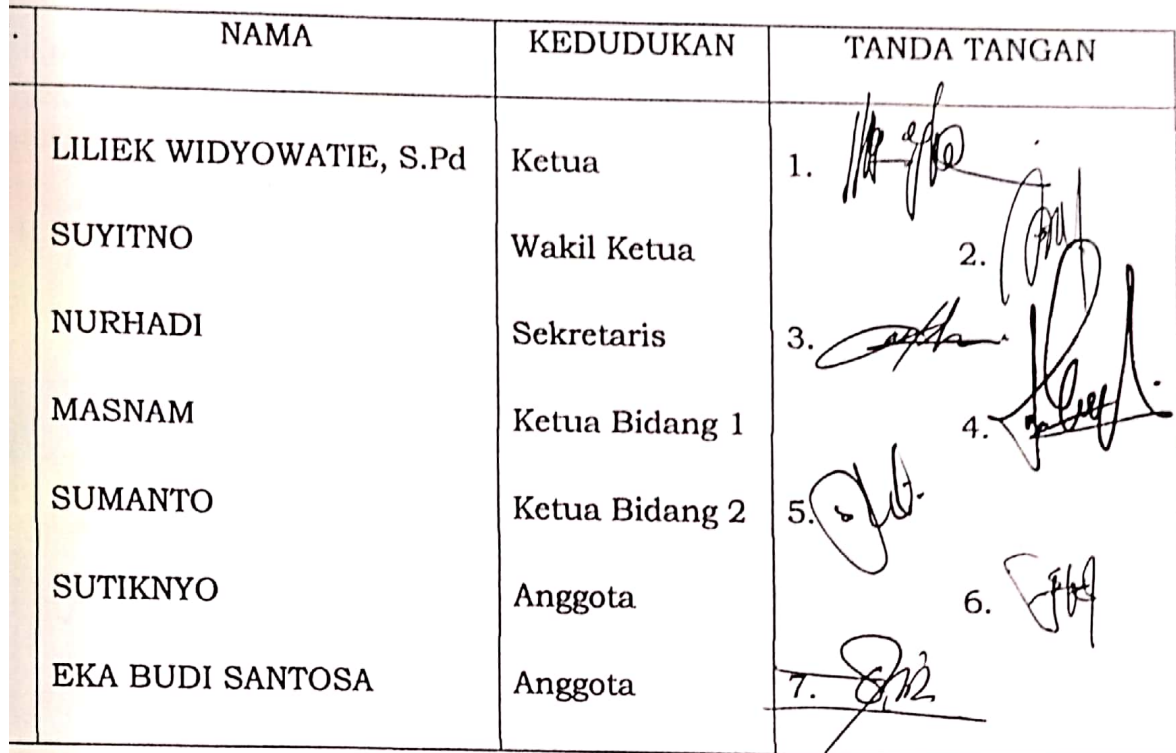 . NAMA KEDUDUKAN TANDA TANGAN
LILIEK WIDYOWATIE, S.Pd Ketua 1.
SUYITNO Wakil Ketua 2.
NURHADI Sekretaris 3.
MASNAM Ketua Bidang 1 4.
SUMANTO Ketua Bidang 2 5.
SUTIKNYO Anggota 6.
EKA BUDI SANTOSA Anggota 7.